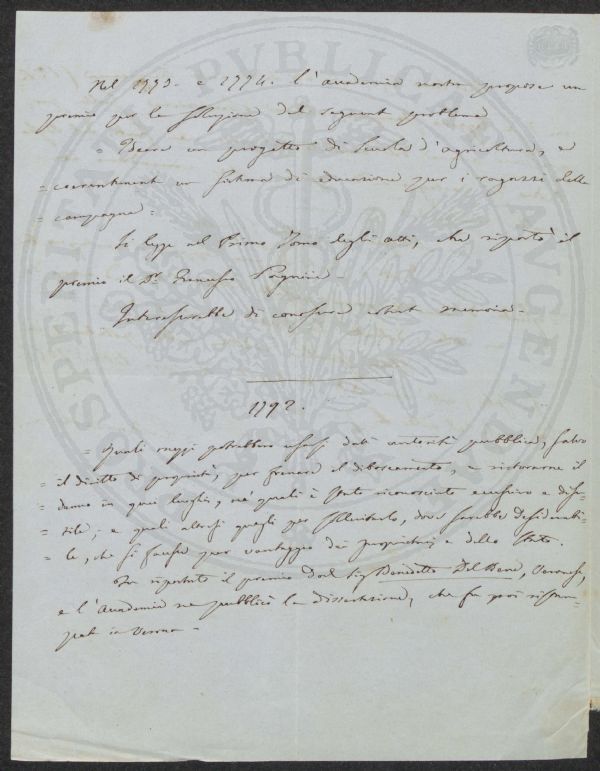 Nel 1773. e 1774. l'accademia nostra propose un
premio per la soluzione del seguente problema
= Ideare un progetto di scuola d'agricoltura, e
= coerentemente un sistema di educazione per i ragazzi delle
= campagne =
Si legge nel Primo Tomo degli atti, che riportò il
premio il Dr. Francesco Pagnini -
Interesserebbe di conoscere cotesta memoria -
1792.
= Quali mezzi potrebbero usarsi dall'autorità pubblica, salvo
= il diritto di proprietà, per frenare il diboscamento, e ristorarne il
= danno in quei luoghi, ne' quali è stato riconosciuto eccessivo e disu-
= tile; e quali altresì quegli per sollecitarlo, dove sarebbe desiderabi-
= le, che si facesse per vantaggio dei proprietarj e dello Stato.
Fu riportato il premio dal Sig Benedetto Del Bene, Veronese,
e l'Accademia ne pubblicò la dissertazione, che fu poi ristam-
pata in Verona -
PROSPERITATI PUBLICAE AUGENDAE